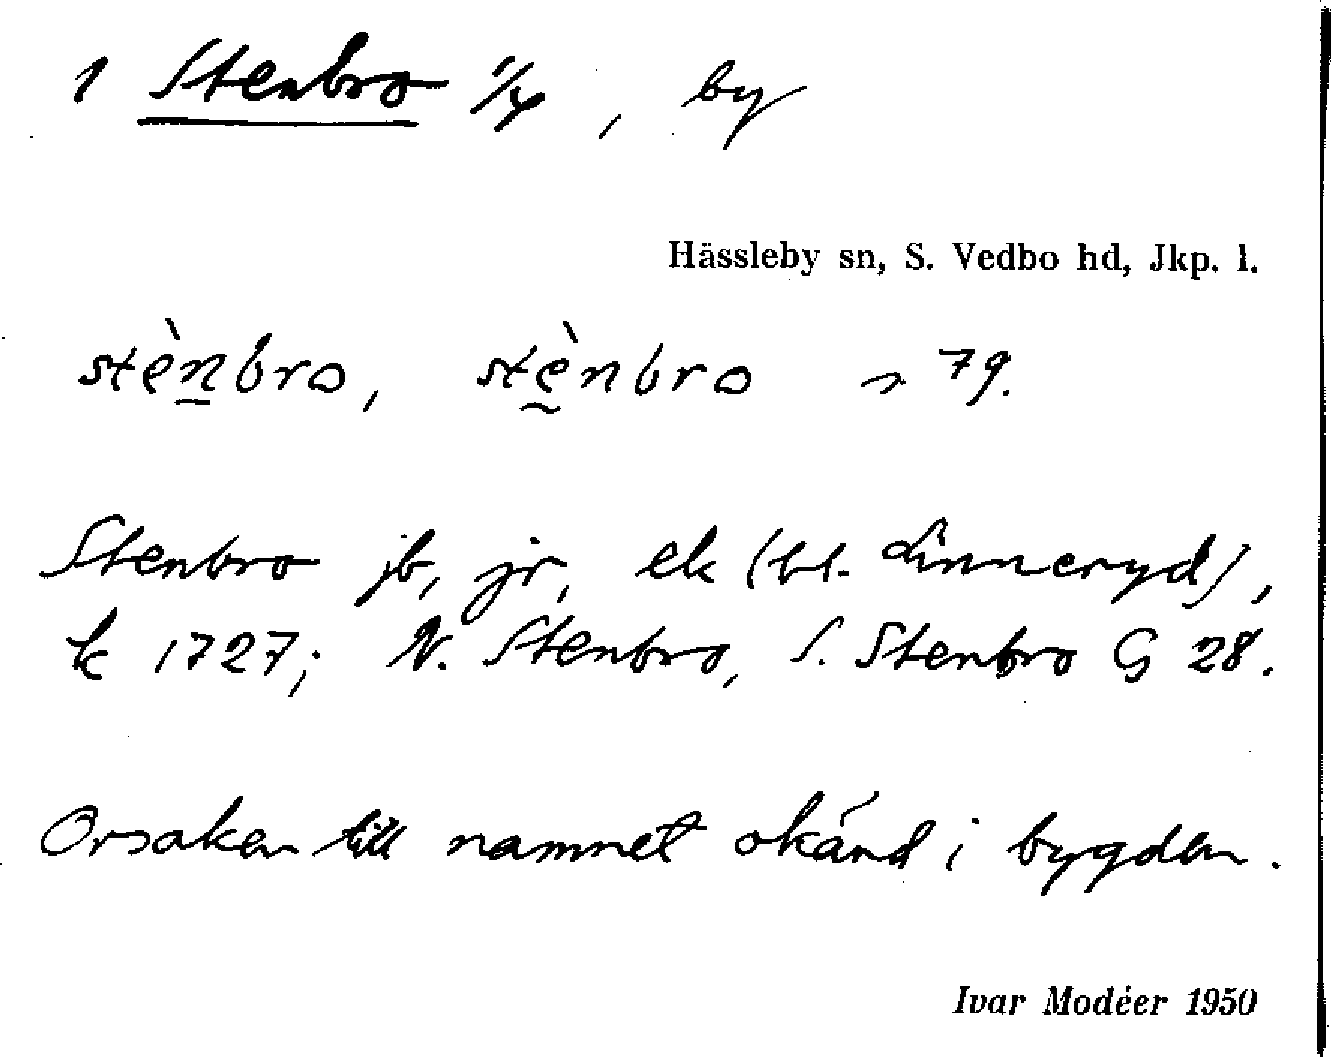 1 Stenbro 1/4, by
Hässleby sn, S. Vedbo hd, Jkp. l.
stènbro, stènbro 79.
Stenbro jb, jr, ek (bl. Linneryd),
k 1727; N. Stenbro, S. Stenbro G 28.
Orsaken till namnet okänd i bygden.
Ivar Modéer 1950